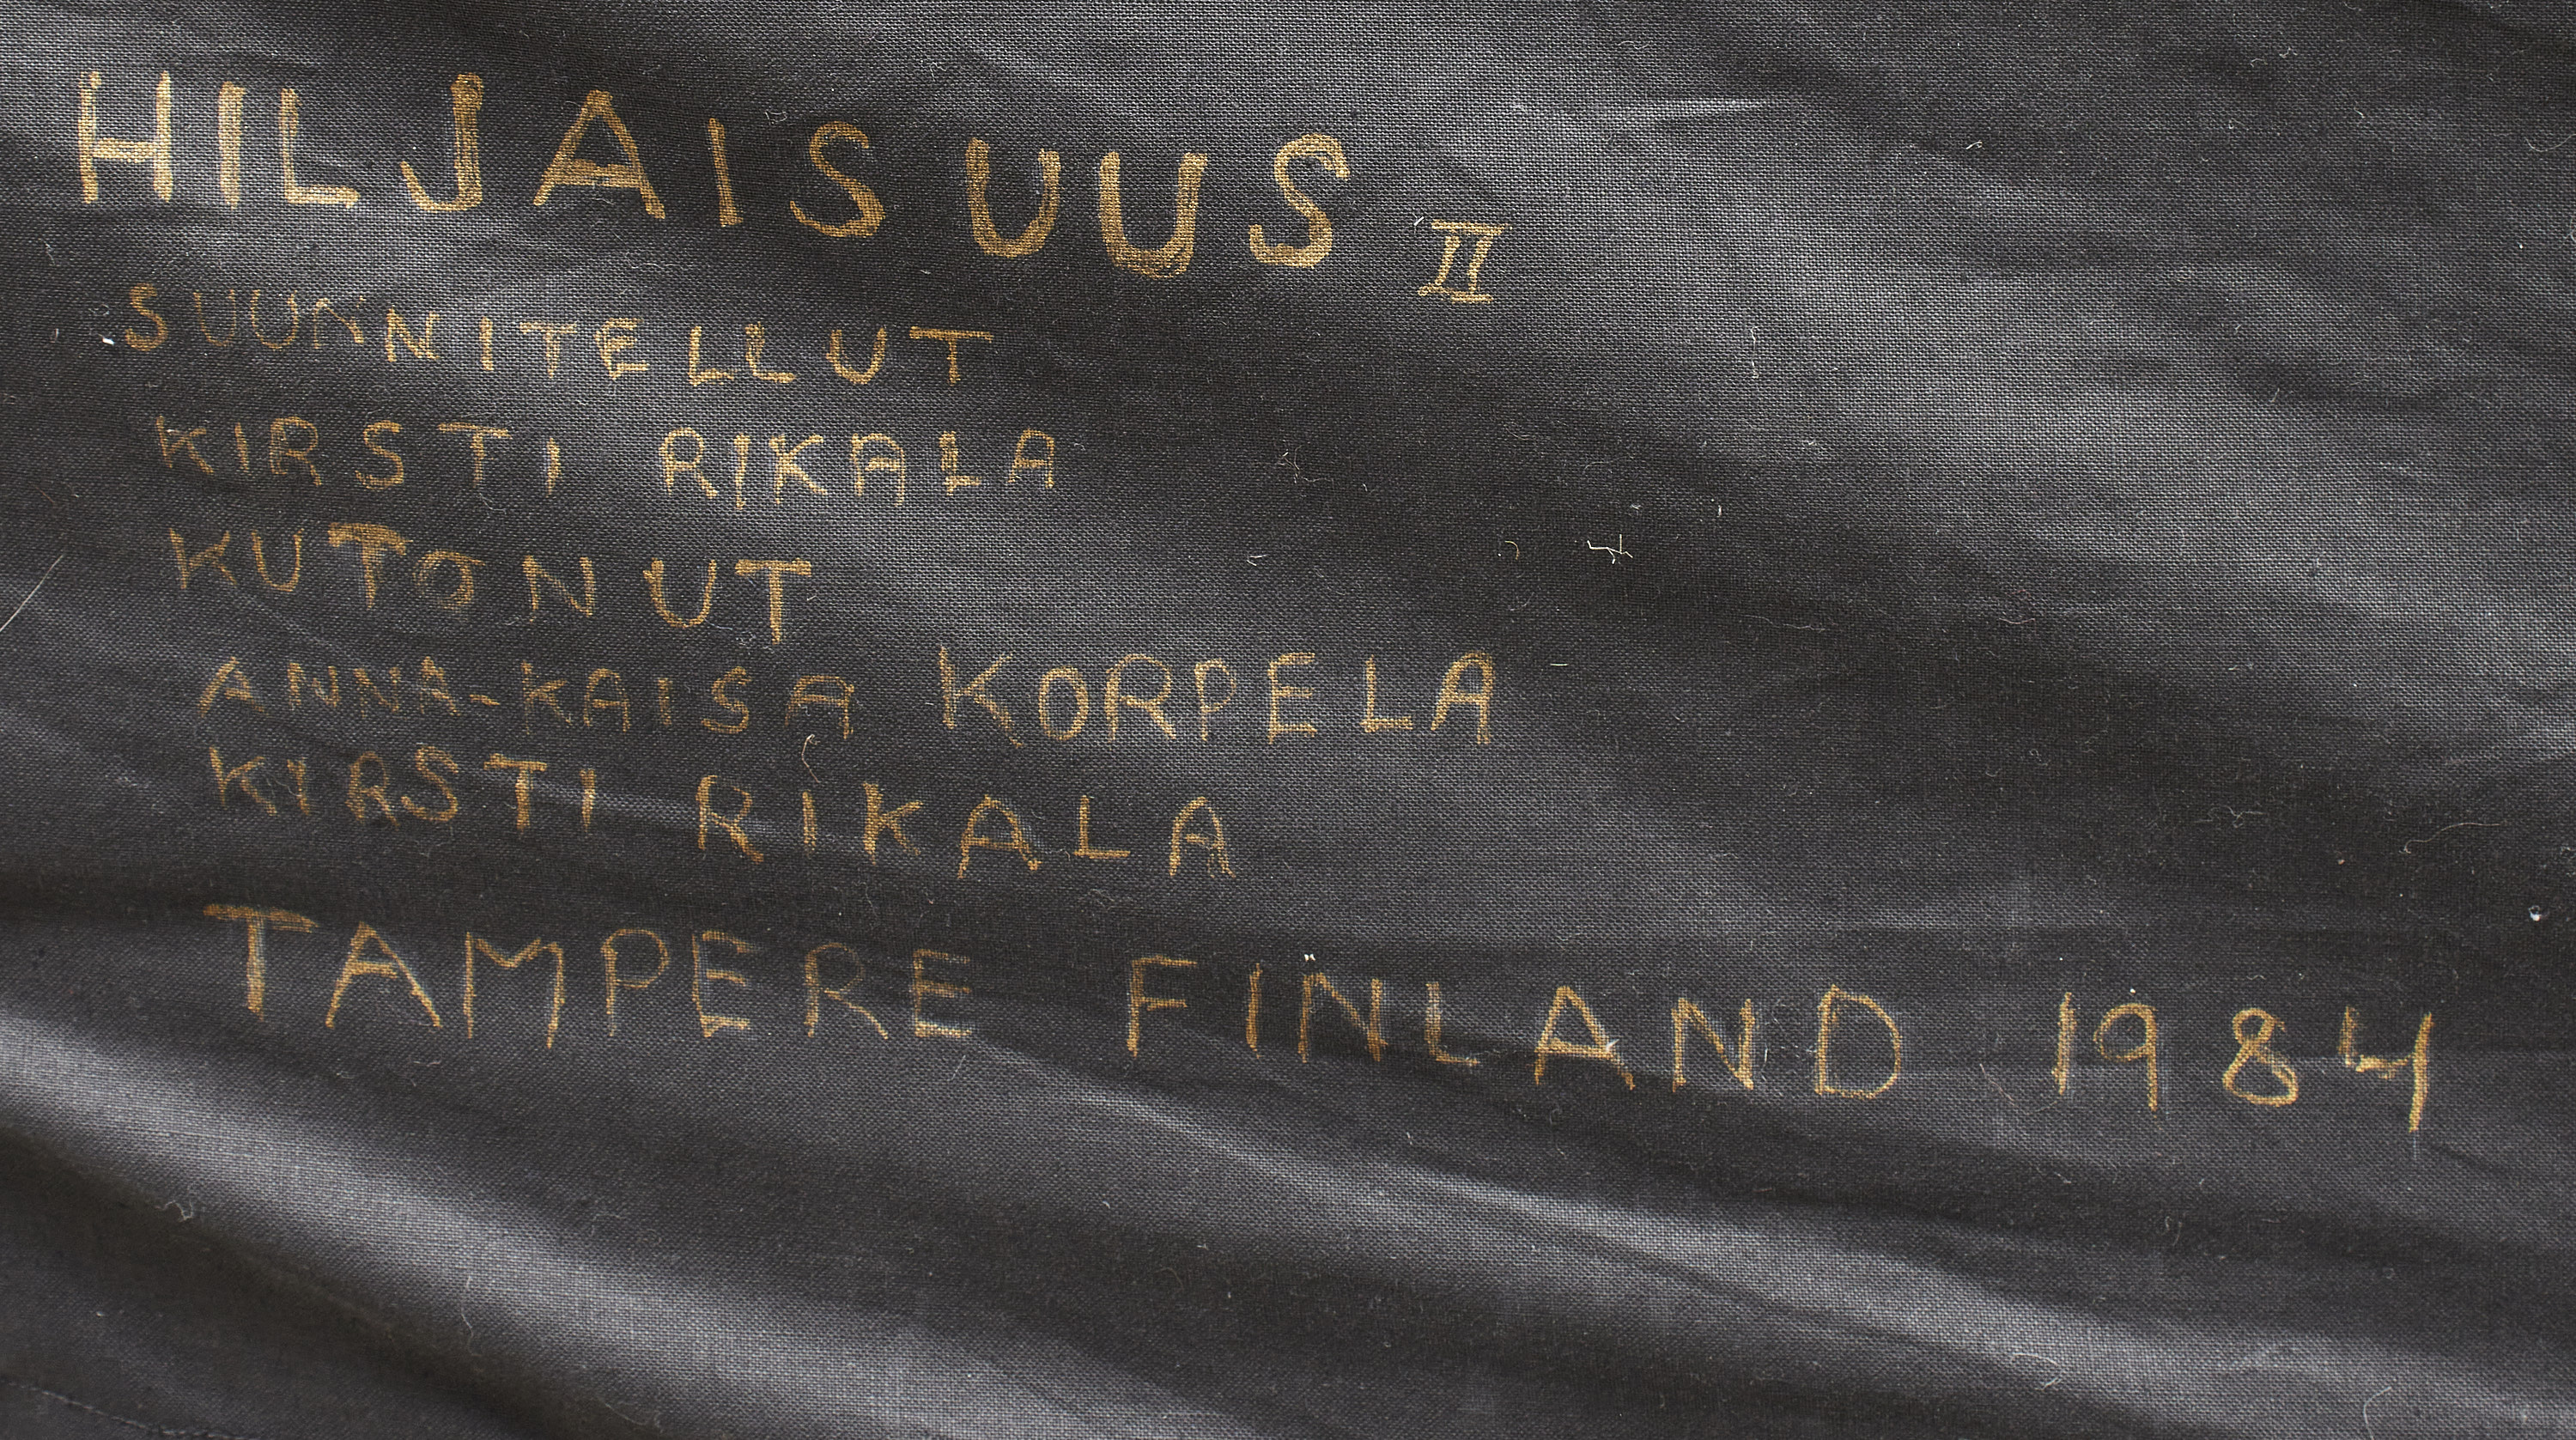 HILJAISUUS II
SUUNNITELLUT
KIRSTI RIKALA
KUTONUT
ANNA-KAISA KORPELA
KIRSTI RIKALA
TAMPERE FINLAND 1984